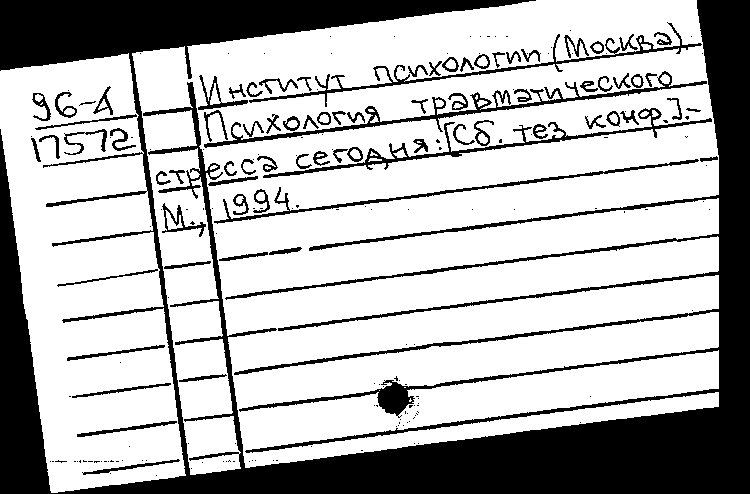 96-4
17572
Институт психологии (Москва)
Психология травматического
стресса сегодня: [Сб. тез конф.].-
М., 1994.